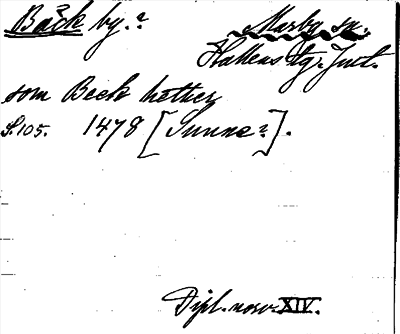 Bäck by.? Marby sn.
Hallens tg. Jmtl.
som Beck hether
S.105. 1478 [Sunne?].
Dipl. norv. XIV.